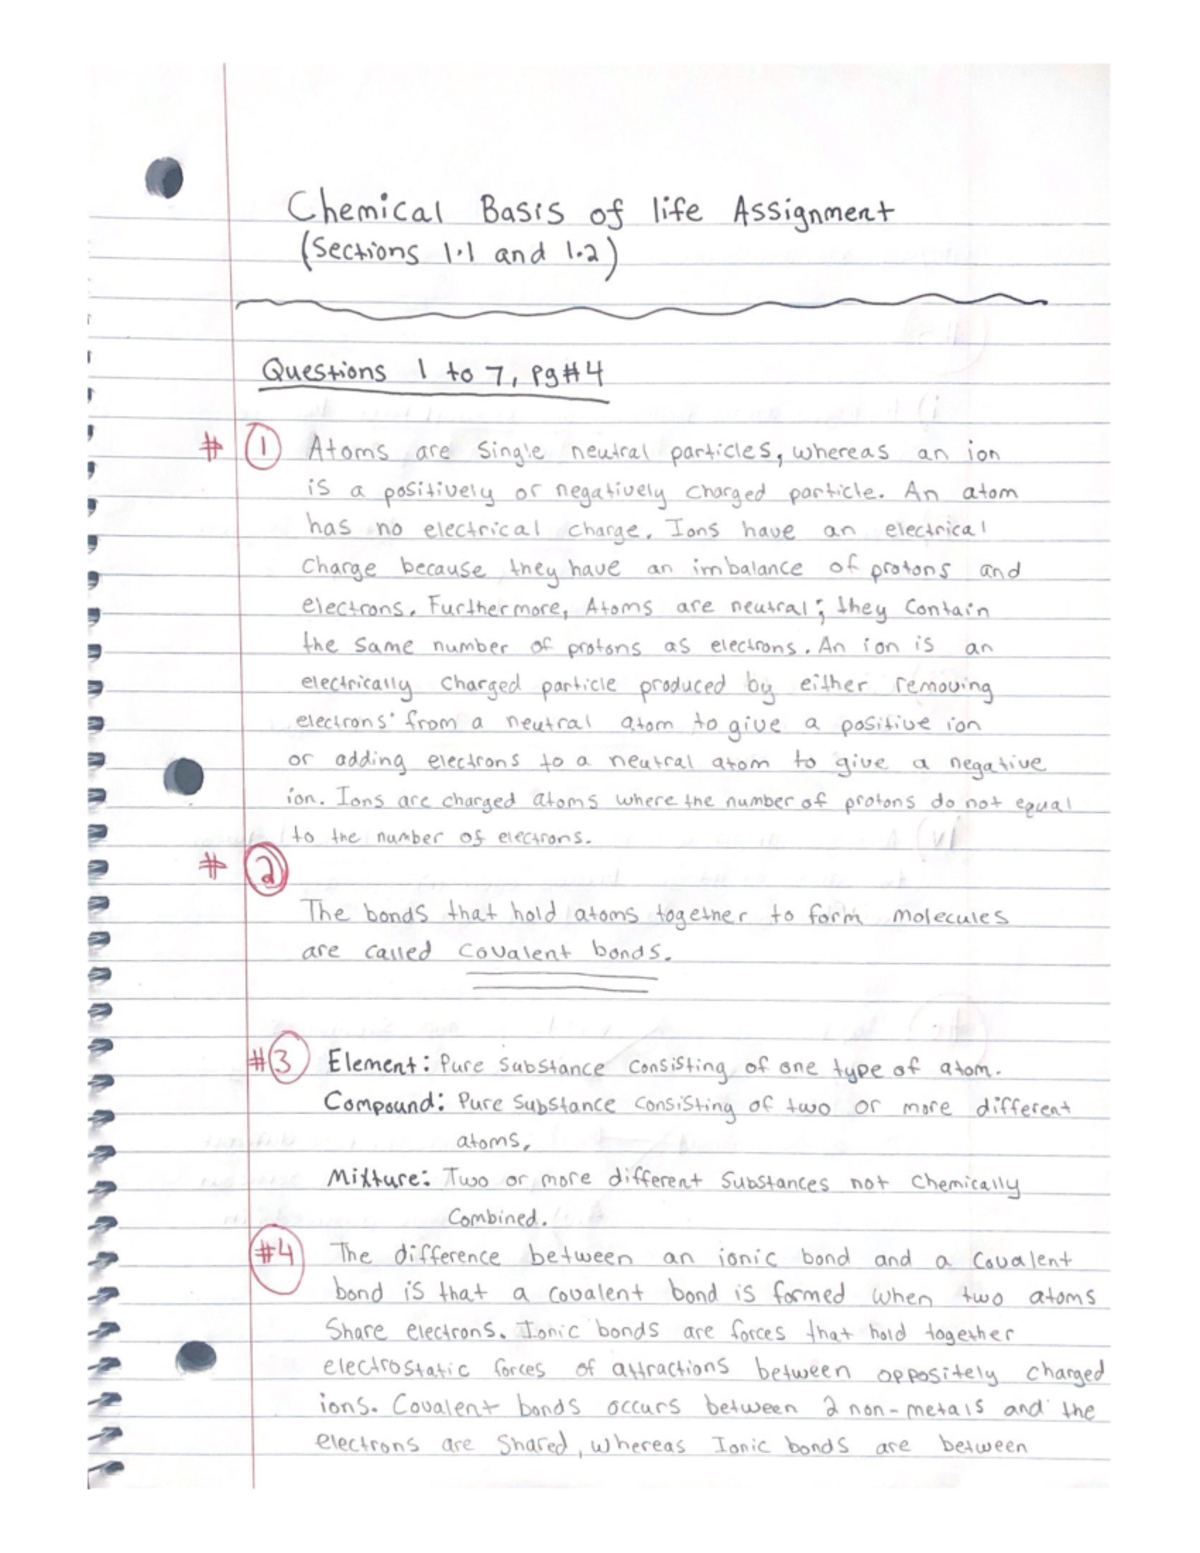 Chemical Basis of life Assignment
(Sections 1.1 and 1.2)
Questions 1 to 7, pg#4
# 1 Atoms are single neutral particles, whereas an ion
is a positively or negatively charged particle. An atom
has no electrical charge. Ions have an electrical
charge because they have an imbalance of protons and
electrons. Furthermore, Atoms are neutral; they contain
the same number of protons as electrons. An ion is an
electrically charged particle produced by either removing
electrons from a neutral atom to give a positive ion
or adding electrons to a neutral atom to give a negative
ion. Ions are charged atoms where the number of protons do not equal
to the number of electrons.
# 2
The bonds that hold atoms together to form molecules
are called covalent bonds.
#3 Element: Pure substance consisting of one type of atom.
Compound: Pure substance consisting of two or more different
atoms,
Mixture: Two or more different substances not chemically
combined.
#4 The difference between an ionic bond and a covalent
bond is that a covalent bond is formed when two atoms
share electrons. Ionic bonds are forces that hold together
electrostatic forces of attractions between oppositely charged
ions. Covalent bonds occurs between 2 non-metals and the
electrons are shared, whereas Ionic bonds are between